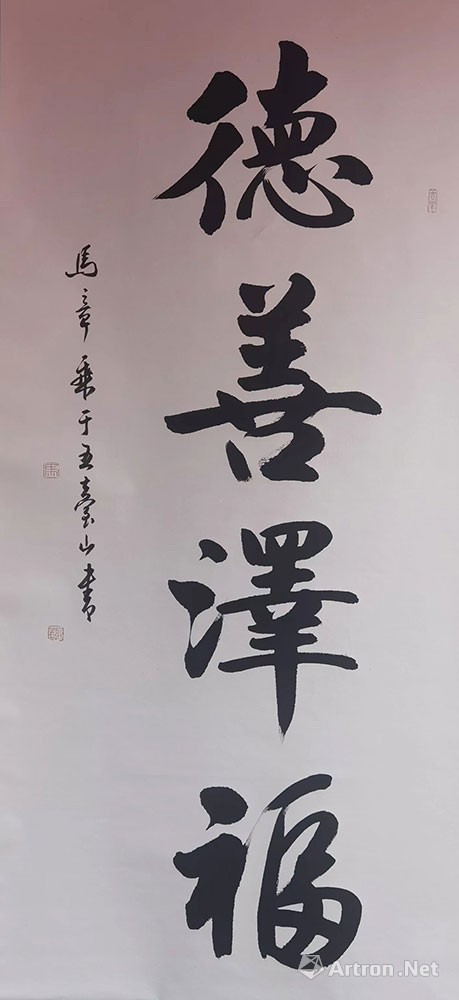 德善澤福
馬章乘于五臺山書
Artron.Net